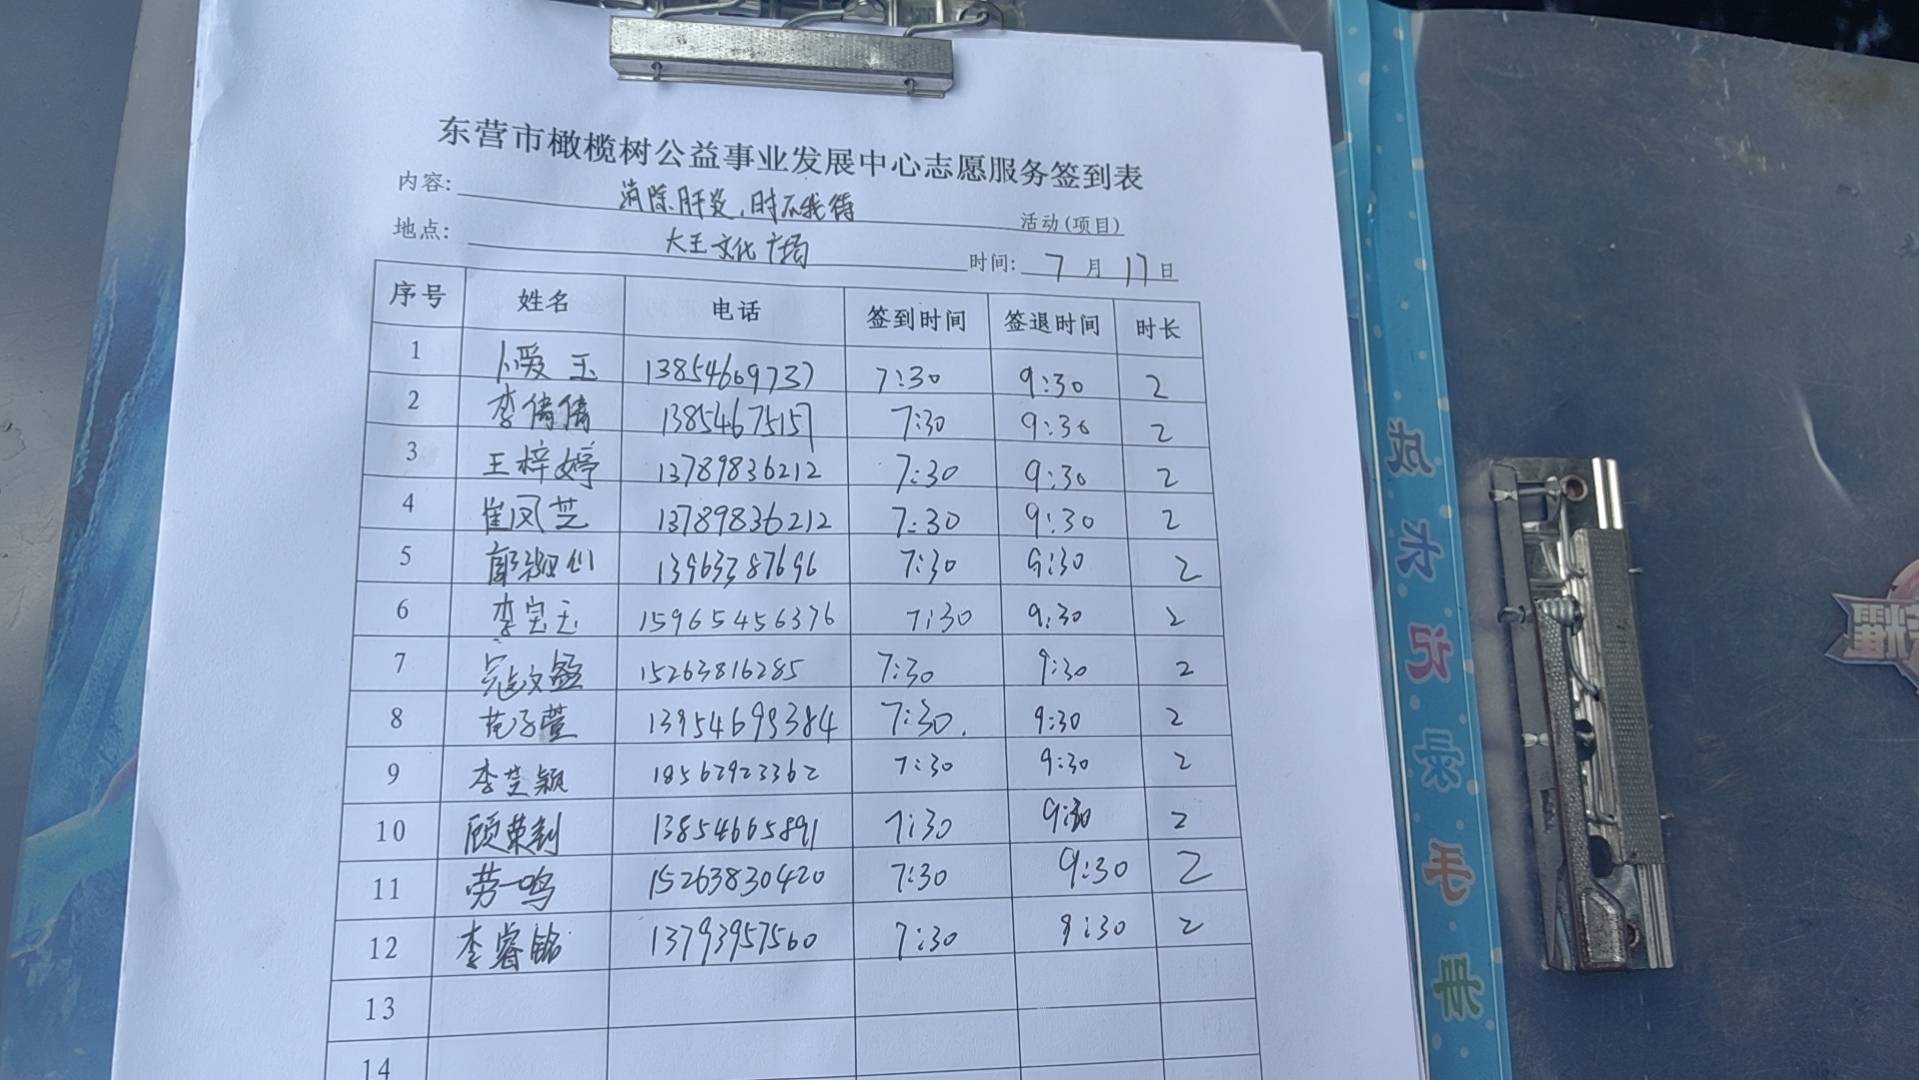 东营市橄榄树公益事业发展中心志愿服务签到表
内容: 消除肝炎,时不我待 活动(项目)
地点: 大王文化广场 时间: 7月17日
序号 姓名 电话 签到时间 签退时间 时长
1 卜爱玉 13854609737 7:30 9:30 2
2 李倩倩 13854675157 7:30 9:30 2
3 王梓婷 13789836212 7:30 9:30 2
4 崔凤芝 13789836212 7:30 9:30 2
5 郭 13963387696 7:30 9:30 2
6 李宝玉 15965456376 7:30 9:30 2
7 寇文盈 15263816285 7:30 9:30 2
8 范子萱 13954699384 7:30. 9:30 2
9 李芝颖 18562923362 7:30 9:30 2
10 顾荣利 13854665891 7:30 9:30 2
11 劳一鸣 15263830420 7:30 9:30 2
12 李睿铭 13793957560 7:30 9:30 2
13
14
成长记录手册